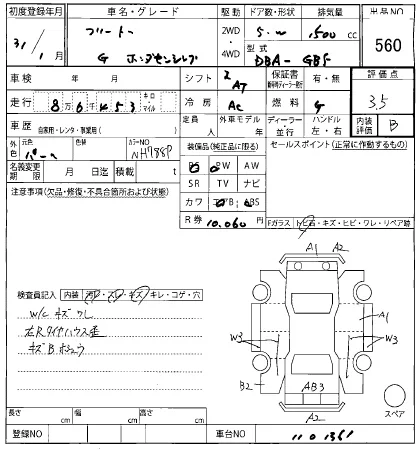 初度登録年月 車名・グレード 駆動 ドア数・形状 排気量 出品NO
31/1月 フリード 2WD 4WD 5・W 1500cc 560
G ホンダセンシング 型式 DBA-GB5
車検 年 月 シフト AT 保証書 有・無 評価点
走行 8万6千453 キロ・マイル 冷房 AC 燃料 G 3.5
車歴 自家用・レンタ・事業用( ) 定員 人 外車モデル 年 ディーラー 並行 ハンドル 左・右 内装評価 B
色 元色 パール 色替 カラーNO NH788P 装備品(純正品に限る) セールスポイント(正常に作動するもの)
名義変更期限 月 日迄 積載 t PS PW AW
注意事項(欠品・修復・不具合箇所および状態) SR TV ナビ
カワ エアB ABS
R券 10,060円 Fガラス トビ石・キズ・ヒビ・ワレ・リペア跡
A1 A2
検査員記入 内装 汚れ・スレ・キズ・キレ・コゲ・穴
W/C キズ ワレ
左Rタイヤハウス歪
キズBホシュウ
A1
W3 W3
B2 AB3
A2 スペア
長さ cm 幅 cm 高さ cm
登録NO 車台NO 1101361